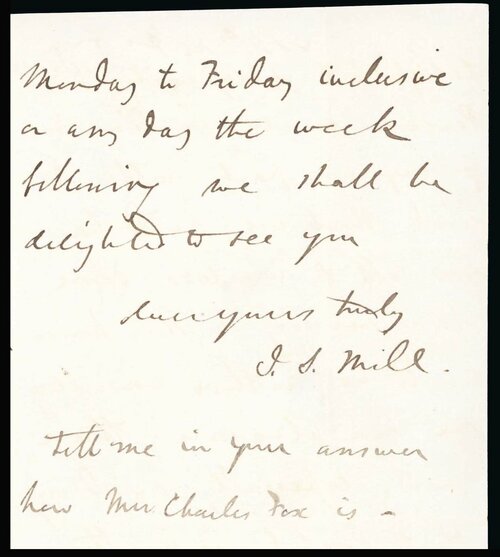 Monday to Friday inclusive
or any day the week
following we shall be
delighted to see you
ever yours truly
J. S. Mill.
tell me in your answer
how Mrs Charles Fox is –